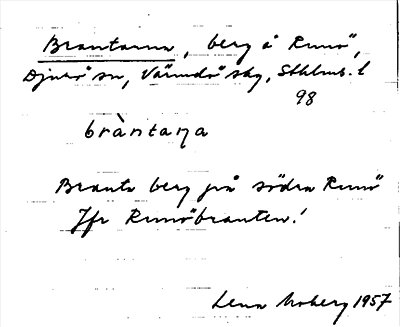 Brantarna, berg å Runö,
Djurö sn, Värmdö skg, Sthlms. l
98
bràntaṇa
Branta berg på södra Runö
Jfr Runöbranten!
Lena Moberg 1957